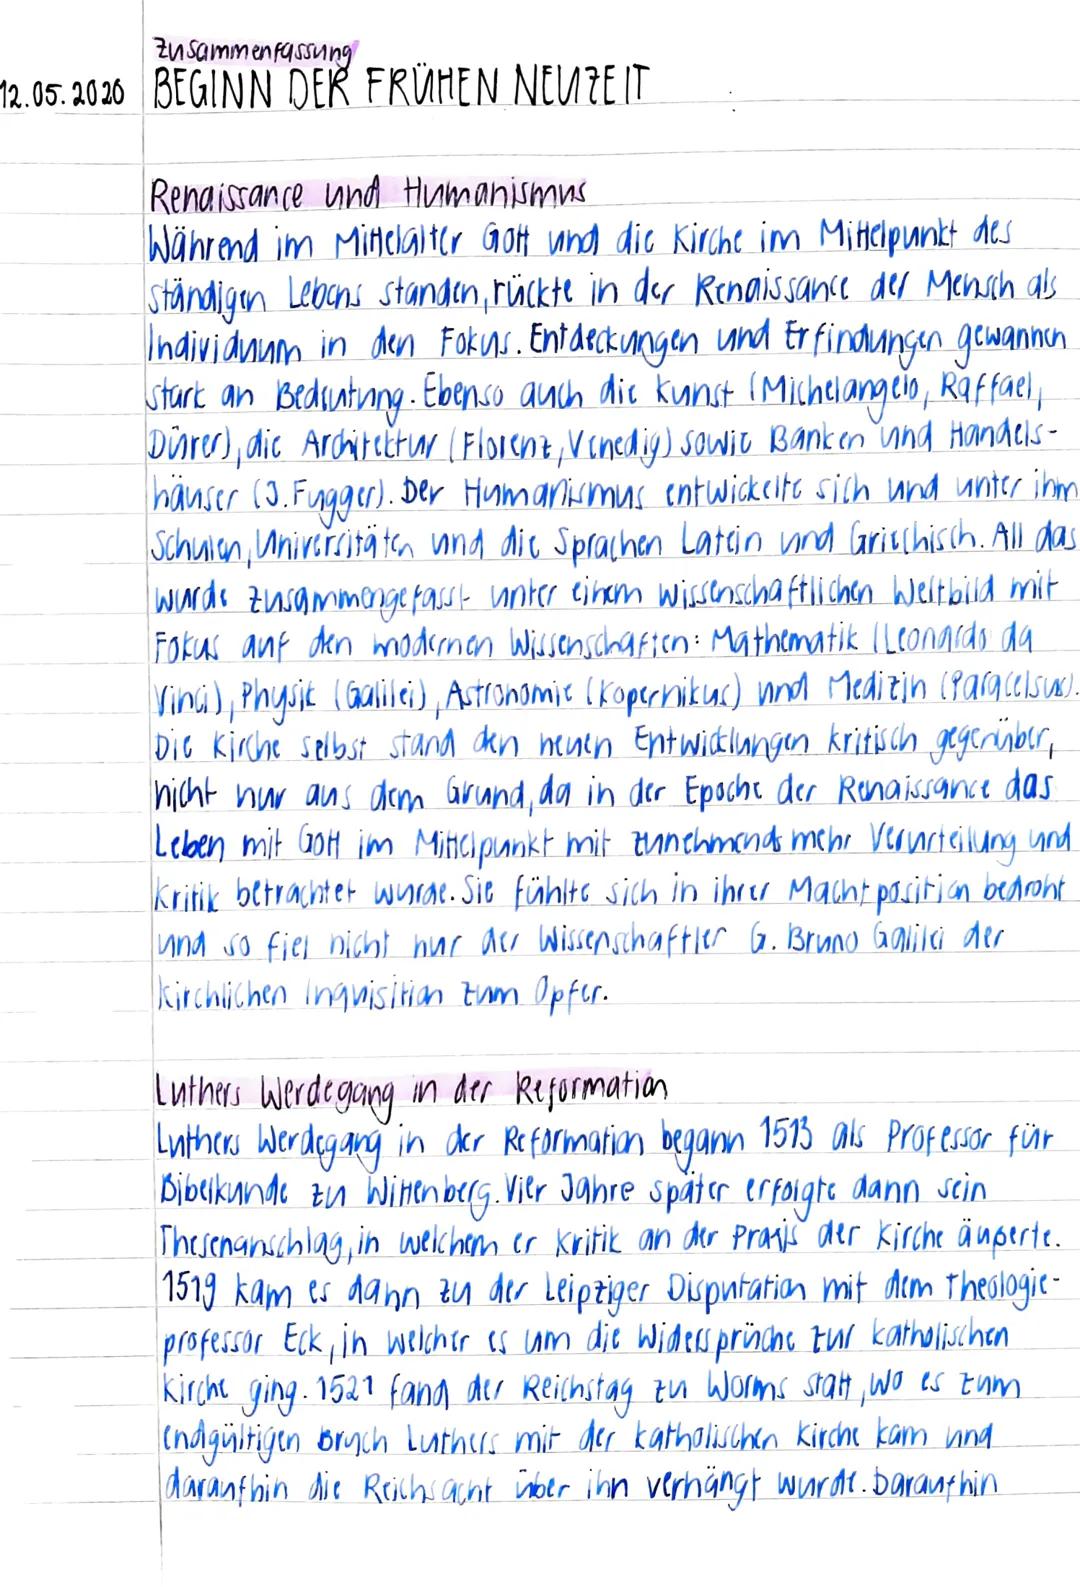 Zusammenfassung
12.05.2020 BEGINN DER FRÜHEN NEUZEIT
Renaissance und Humanismus
Während im Mittelalter Gott und die Kirche im Mittelpunkt des
ständigen Lebens standen, rückte in der Renaissance der Mensch als
Individuum in den Fokus. Entdeckungen und Erfindungen gewannen
stark an Bedeutung. Ebenso auch die Kunst (Michelangelo, Raffael,
Dürer), die Architektur (Florenz, Venedig) sowie Banken und Handels-
häuser (J. Fugger). Der Humanismus entwickelte sich und unter ihm
Schulen, Universitäten und die Sprachen Latein und Griechisch. All das
wurde zusammengefasst unter einem wissenschaftlichen Weltbild mit
Fokus auf den modernen Wissenschaften: Mathematik (Leonardo da
Vinci), Physik (Galilei), Astronomie (Kopernikus) und Medizin (Paracelsus).
Die Kirche selbst stand den neuen Entwicklungen kritisch gegenüber,
nicht nur aus dem Grund, da in der Epoche der Renaissance das
Leben mit Gott im Mittelpunkt mit zunehmends mehr Verurteilung und
Kritik betrachtet wurde. Sie fühlte sich in ihrer Machtposition bedroht
und so fiel nicht nur der Wissenschaftler G. Bruno Galilei der
kirchlichen Inquisition zum Opfer.
Luthers Werdegang in der Reformation
Luthers Werdegang in der Reformation begann 1513 als Professor für
Bibelkunde zu Wittenberg. Vier Jahre später erfolgte dann sein
Thesenanschlag, in welchem er Kritik an der Praxis der Kirche äußerte.
1519 kam es dann zu der Leipziger Disputation mit dem Theologie-
professor Eck, in welcher es um die Widersprüche zur katholischen
Kirche ging. 1521 fand der Reichstag zu Worms statt, wo es zum
endgültigen Bruch Luthers mit der katholischen Kirche kam und
daraufhin die Reichsacht über ihn verhängt wurde. Daraufhin